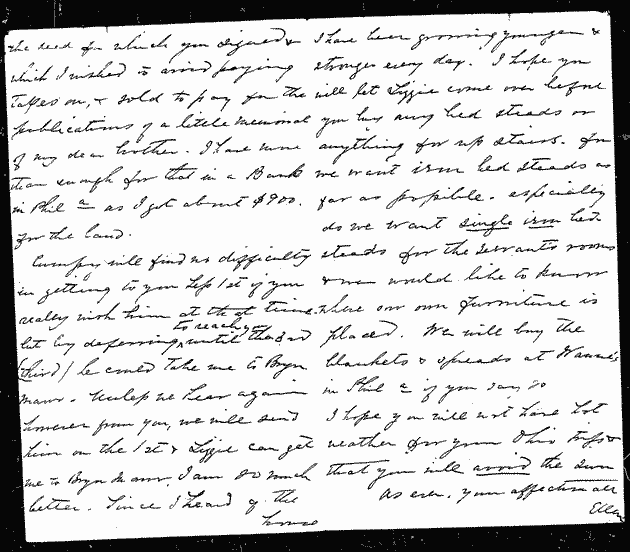 the deed for which you signed &
which I wished to avoid paying
Taxes on, & sold to pay for the
publications of a little memorial
of my dear brother. I have more
than enough for that in a Bank
in Phila as I got about $900.
for the land.
Cumpy will find no difficulty
in getting to you Sep 1st if you
really wish him at that time.
but by deferring to reach you until the 3rd
(third) he could take me to Bryn
Mawr. Unless we hear again
however from you, we will send
him on the 1st & Lizzie can get
me to Bryn Mawr. I am so much
better. Since I heard of the
house
I have been growing younger &
stronger every day. I hope you
will let Lizzie come over before
you buy any bed steads or
anything for up stairs. for
we want iron bed steads as
far as possible. especially
do we want single iron bed
steads for the servants rooms
& we would like to know
where our own furniture is
placed. We will buy the
blankets & spreads at Wanna's
in Phila if you say so
I hope you will not have hot
weather for your Ohio trip &
that you will avoid the sun
As ever, your affectionate
Ellen